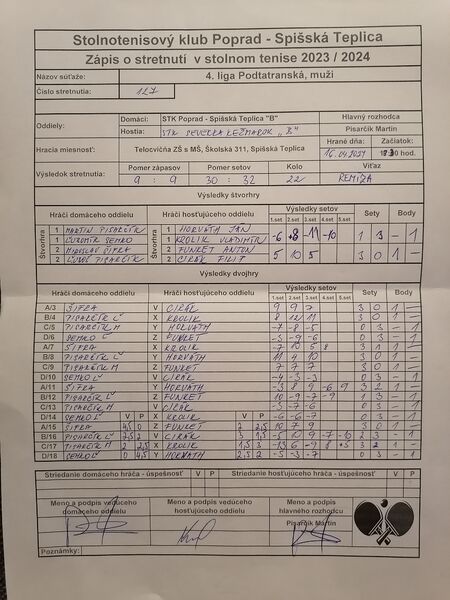 Stolnotenisový klub Poprad - Spišská Teplica
Zápis o stretnutí v stolnom tenise 2023 / 2024
Názov súťaže: 4. liga Podtatranská, muži
Číslo stretnutia: 127
Oddiely: Domáci: STK Poprad - Spišská Teplica "B" Hlavný rozhodca
Hostia: STK SEVERKA KEŽMAROK "B" Pisarčík Martin
Hracia miesnosť: Telocvičňa ZŠ s MŠ, Školská 311, Spišská Teplica Hrané dňa: Začiatok:
16.04.2024 hod.
Výsledok stretnutia: Pomer zápasov Pomer setov Kolo Víťaz
9 : 9 30 : 32 22 REMÍZA
Výsledky štvorhry
Hráči domáceho oddielu Hráči hosťujúceho oddielu Výsledky setov Sety Body
1.set 2.set 3.set 4.set 5.set
Štvorhra 1 MARTIN PISARČÍK Štvorhra 1 HORVÁTH JÁN -6 +8 -11 -10 1 3 - 1
1 ĽUBOMÍR SEMKO 1 KROLIK VLADIMÍR
2 MIROSLAV ŠIFRA 2 FUNKET ANTON 5 10 5 3 0 1 -
2 ĽUBOŠ PISARČÍK 2 CIRÁK FILIP
Výsledky dvojhry
Hráči domáceho oddielu Hráči hosťujúceho oddielu Výsledky setov Sety Body
1.set 2.set 3.set 4.set 5.set
A/3 ŠIFRA V CIRÁK 9 9 7 3 0 1 -
B/4 PISARČÍK Ľ X KROLIK 8 12 11 3 0 1 -
C/5 PISARČÍK M Y HORVÁTH -7 -8 -5 0 3 - 1
D/6 SEMKO Ľ Z FUNKET -3 -9 -6 0 3 - 1
A/7 ŠIFRA X KROLIK -7 10 5 8 3 1 1 -
B/8 PISARČÍK Ľ Y HORVÁTH 11 4 10 3 0 1 -
C/9 PISARČÍK M Z FUNKET 7 7 7 3 0 1 -
D/10 SEMKO Ľ V CIRÁK -4 -3 -3 0 3 - 1
A/11 ŠIFRA Y HORVÁTH -3 8 9 -6 9 3 2 1 -
B/12 PISARČÍK Ľ Z FUNKET 10 -9 -7 -9 1 3 - 1
C/13 PISARČÍK M V CIRÁK -3 -7 -6 0 3 - 1
D/14 SEMKO Ľ V P X KROLIK V P -6 -6 -7 0 3 - 1
A/15 ŠIFRA 4,5 0 Z FUNKET 2 2,5 10 7 9 3 0 1 -
B/16 PISARČÍK Ľ 2,5 2 V CIRÁK 3 1,5 -5 10 9 -7 -10 2 3 - 1
C/17 PISARČÍK M 2 2,5 X KROLIK 1,5 3 -13 6 -7 8 3 2 1 -
D/18 SEMKO Ľ 0 4,5 Y HORVÁTH 2,5 2 -5 -3 -7 0 3 - 1
Striedanie domáceho hráča - úspešnosť V P Striedanie hosťujúceho hráča - úspešnosť V P
Meno a podpis vedúceho Meno a podpis vedúceho Meno a podpis
domáceho oddielu hosťujúceho oddielu hlavného rozhodcu
Pisarčík Martin
Poznámky: